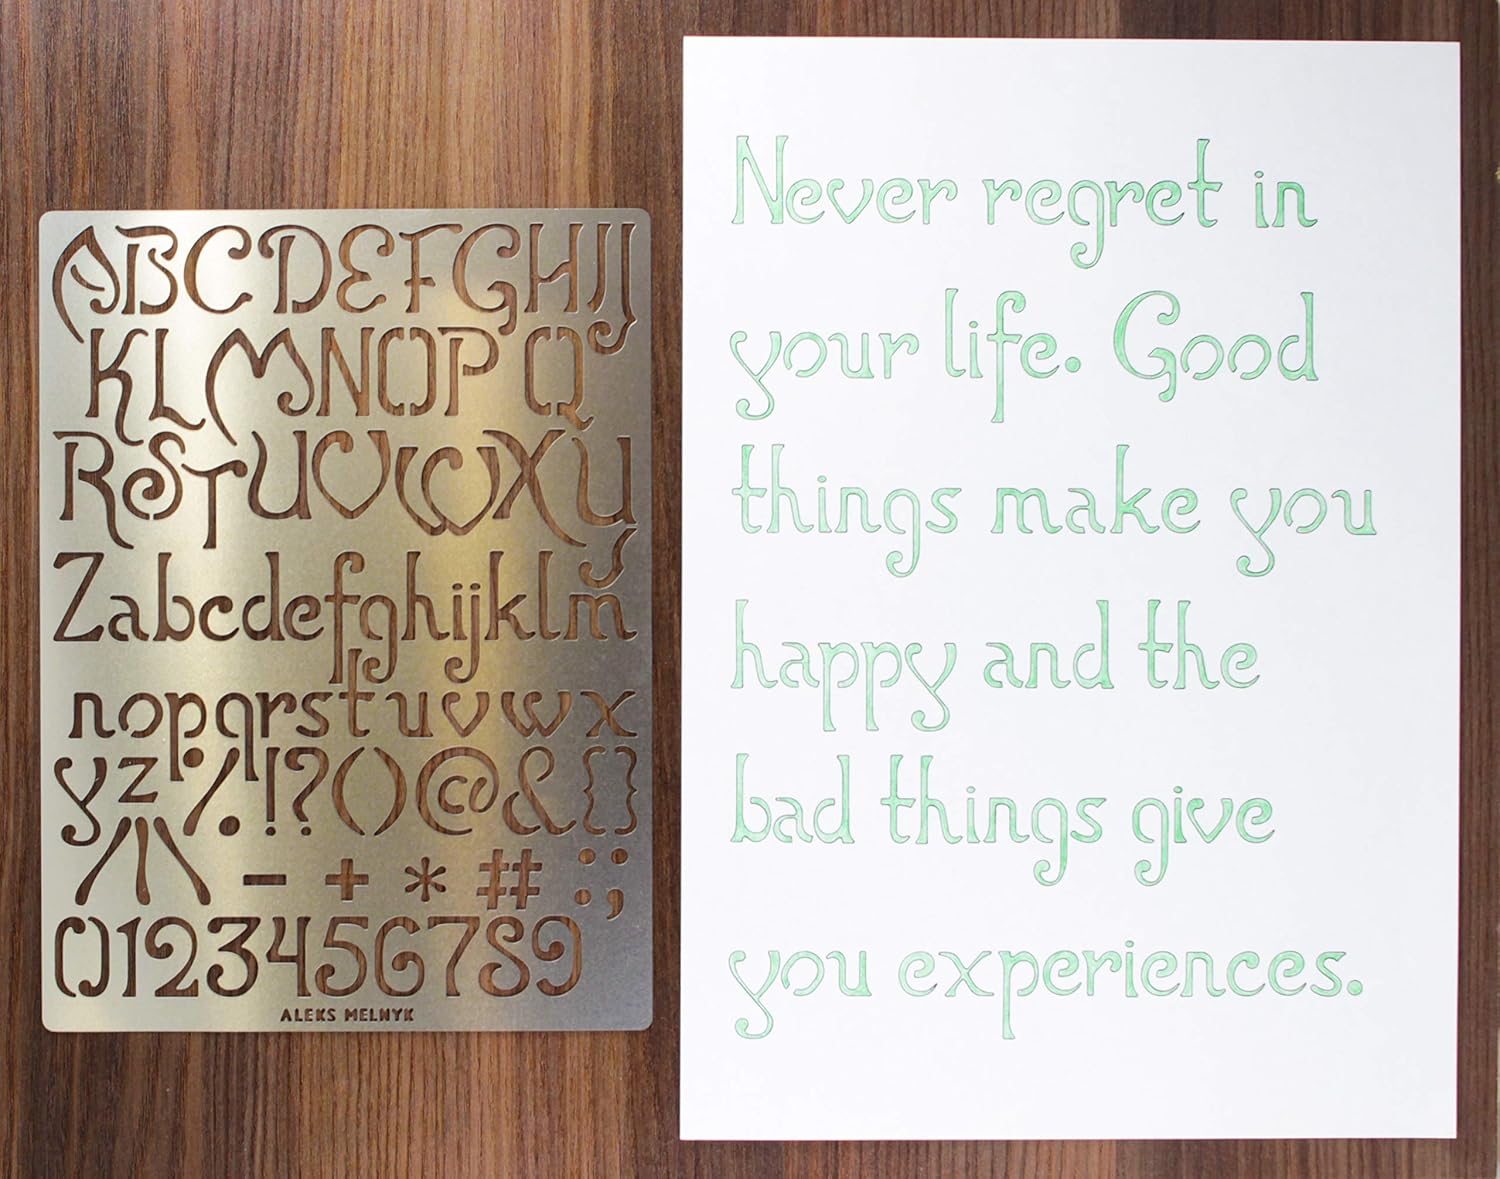 ABCDEFGHIJ
KLMNOPQ
RSTUVWXY
Zabcdefghijklm
nopqrstuvwx
yz'/.!?()@&{}
/\/\ - + * # : ;
0123456789
ALEKS MELNYK
Never regret in
your life. Good
things make you
happy and the
bad things give
you experiences.